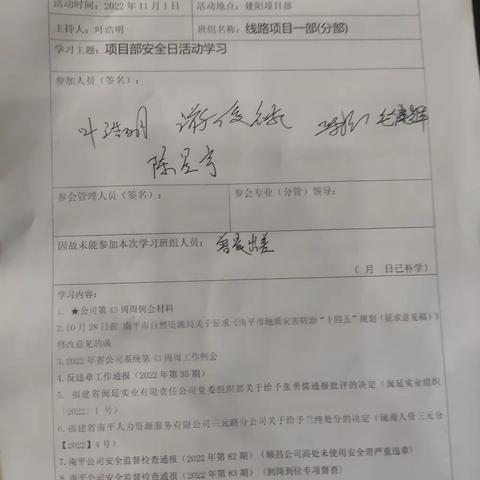 活动时间：2022年11月1日 活动地点：建阳项目部
主持人：叶浩明 班组名称：线路项目一部(分部)
学习主题：项目部安全日活动学习
参加人员（签名）：
叶浩明 游俊
陈星宇
参会管理人员（签名）： 参会专业（分管）领导：
因故未能参加本次学习班组人员： 出差
（ 月 日已补学）
学习内容：
1. ★公司第43周周例会材料
2.10月28日前 南平市自然资源局关于征求《南平市地质灾害防治“十四五”规划（征求意见稿）》
修改意见的函
3.2022年省公司系统第43周周工作例会
4.反违章工作通报（2022年第35期）
5. 福建省闽延实业有限责任公司党委组织部关于给予张勇儒通报批评的决定（闽延实业组织
〔2022〕1号）
6.福建省南平人力资源服务有限公司三元路分公司关于给予兰纯处分的决定（闽南人资三元分
【2022】4号）
7.南平公司安全监督检查通报（2022年第82期）（顺昌公司高处未使用安全带严重违章）
8.南平公司安全监督检查通报（2022年第83期）（到岗到位专项督查）